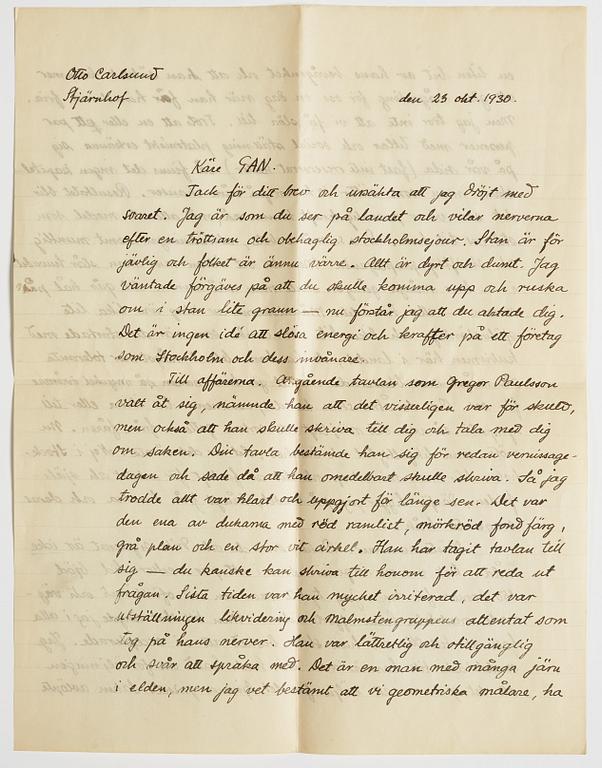 Otto Carlsund
Stjärnhof den 25 okt. 1930.
Käre GAN.
Tack för ditt brev och ursäkta att jag dröjt med
svaret. Jag är som du ser på landet och vilar nerverna
efter en tröttsam och obehaglig stockholmsejour. Stan är för
jävlig och folket är ännu värre. Allt är dyrt och dumt. Jag
väntade förgäves på att du skulle komma upp och ruska
om i stan lite graun — nu förstår jag att du aktade dig.
Det är ingen idé att slösa energi och krafter på ett företag
som Stockholm och dess invånare.
Till affärerna. Angående tavlan som Gregor Paulsson
valt åt sig, nämnde han att det visserligen var för skuld,
men också att han skulle skriva till dig och tala med dig
om saken. Din tavla bestämde han sig för redan vernissage-
dagen och sade då att han omedelbart skulle skriva. Så jag
trodde allt var klart och uppgjort för länge sen. Det var
den ena av dukarna med röd ramlist, mörkröd fondfärg,
grå plan och en stor vit cirkel. Han har tagit tavlan till
sig — du kanske kan skriva till honom för att reda ut
frågan. Sista tiden var han mycket irriterad, det var
utställningen likvidering och Malmstengruppens attentat som
tog på hans nerver. Han var lättretlig och otillgänglig
och svår att språka med. Det är en man med många järn
i elden, men jag vet bestämt att vi geometriska målare, ha